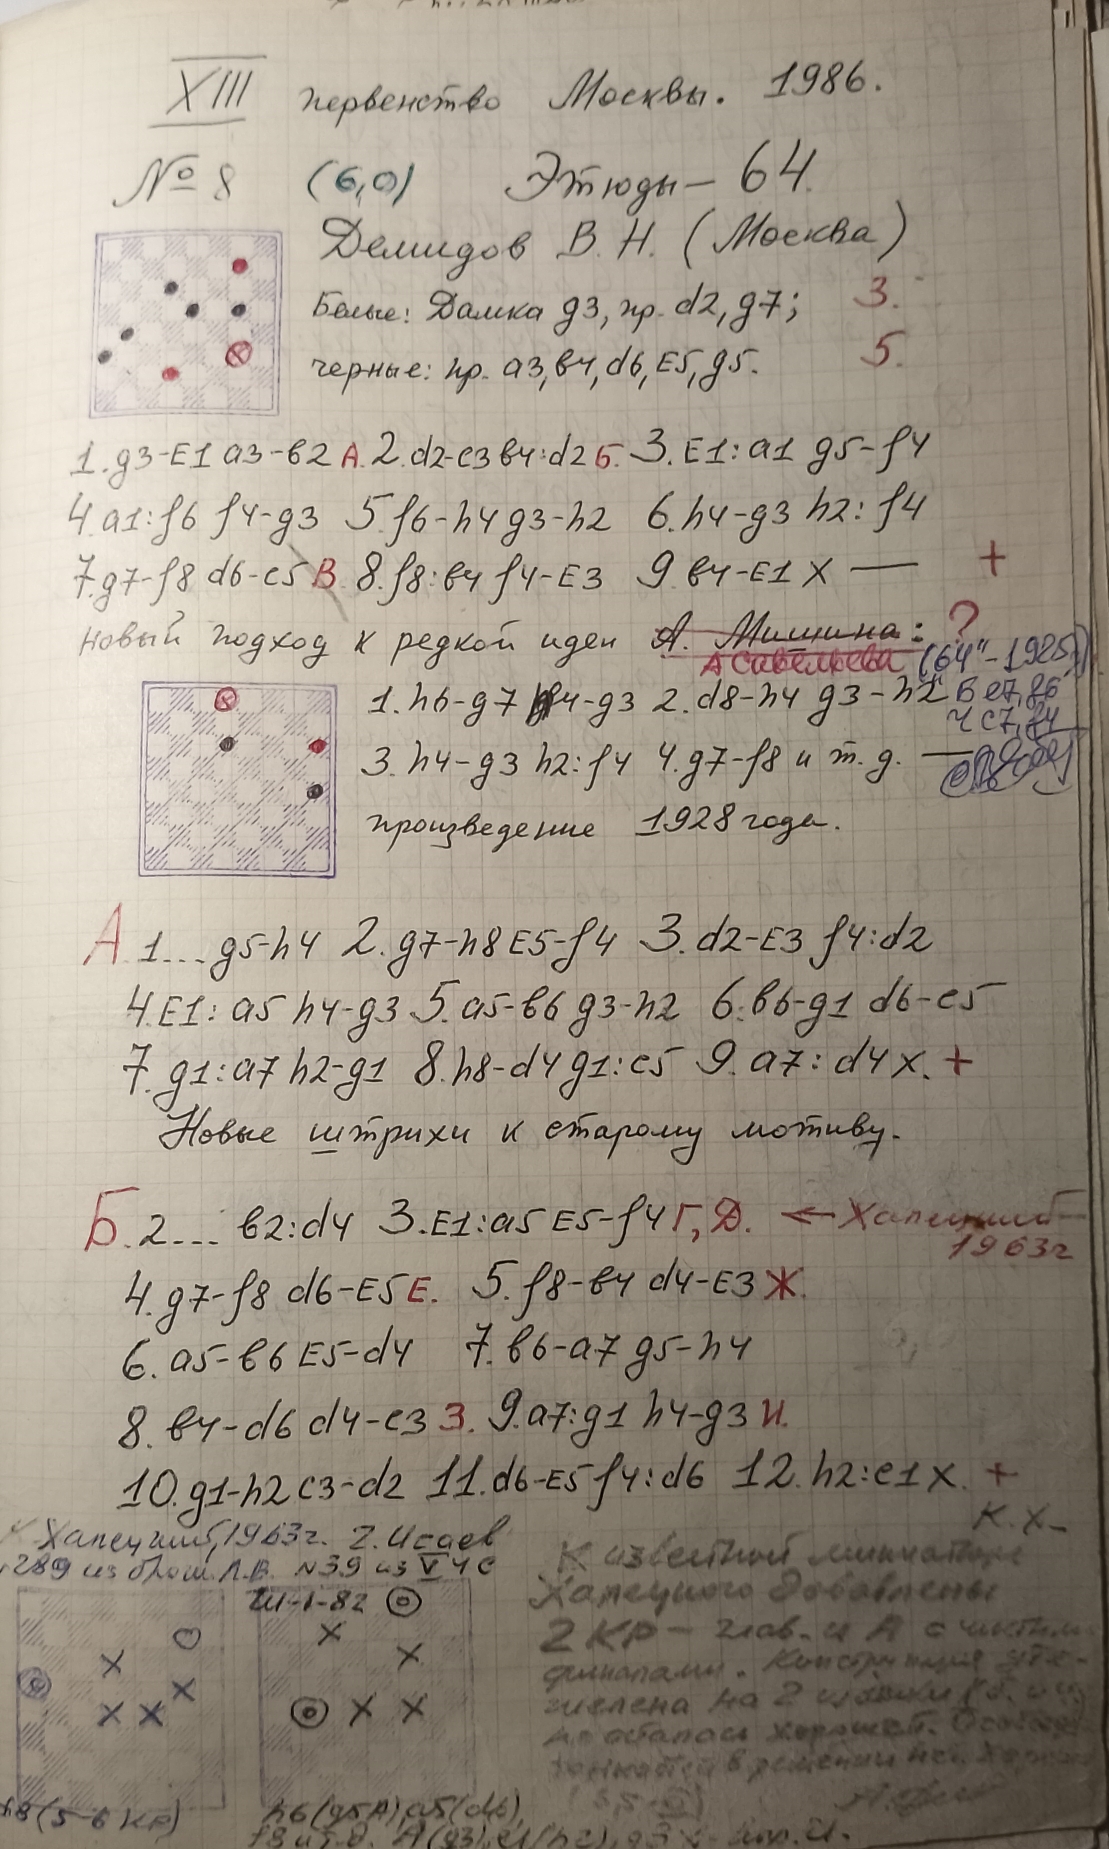 XIII первенство Москвы. 1986.
№ 8 (6,0) Этюды – 64.
Демидов В. Н. (Москва)
Белые: Дамка g3, пр. d2, g7; 3.
черные: пр. a3, в4, d6, E5, g5. 5.
1. g3-E1 a3-в2 А. 2. d2-c3 в4:d2 Б. 3. E1:a1 g5-f4
4. a1:f6 f4-g3 5. f6-h4 g3-h2 6. h4-g3 h2:f4
7. g7-f8 d6-c5 В. 8. f8:в4 f4-E3 9. в4-E1 X — +
Новый подход к редкой идеи А. Мишина: ?
А Савельева ("64" - 1925)
1. h6-g7 f4-g3 2. d8-h4 g3-h2 Б e7, f6
Ч c7, f4
3. h4-g3 h2:f4 4. g7-f8 и т. д. —
произведение 1928 года.
А. 1... g5-h4 2. g7-h8 E5-f4 3. d2-E3 f4:d2
4. E1:a5 h4-g3 5. a5-в6 g3-h2 6. в6-g1 d6-c5
7. g1:a7 h2-g1 8. h8-d4 g1:c5 9. a7:d4 X. +
Новые штрихи к старому мотиву.
Б. 2... в2:d4 3. E1:a5 E5-f4 Г, Д. ← Халецкий
1963г
4. g7-f8 d6-E5 Е. 5. f8-в4 d4-E3 Ж.
6. a5-в6 E5-d4 7. в6-a7 g5-h4
8. в4-d6 d4-c3 З. 9. a7:g1 h4-g3 И.
10. g1-h2 c3-d2 11. d6-E5 f4:d6 12. h2:e1 X. +
К. Х.
Халецкий, 1963г. 2. Исаев
289 из брош. Л.В. N39 из V ЧС
Ш-1-82
К известной миниатюре
Халецкого добавлены
2 КР – глав. и А с чистыми
финалами. Конструкция утя-
желена на 2 шашки
осталась хорошей.
в решении нет.
h8 (5-6 КР)
h6 (g5A), a5 (d6),
f8 и т. д. А (g3), e1 (h2), g3 X